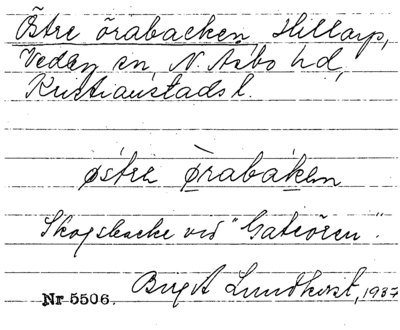 Östre örabacken, Hillarp,
Vedby sn, N. Åsbo hd,
Kristianstads l.
östre örabaken
Skogsbacke vid "Gateören".
Nr 5506. Birgit Lundkvist, 1937